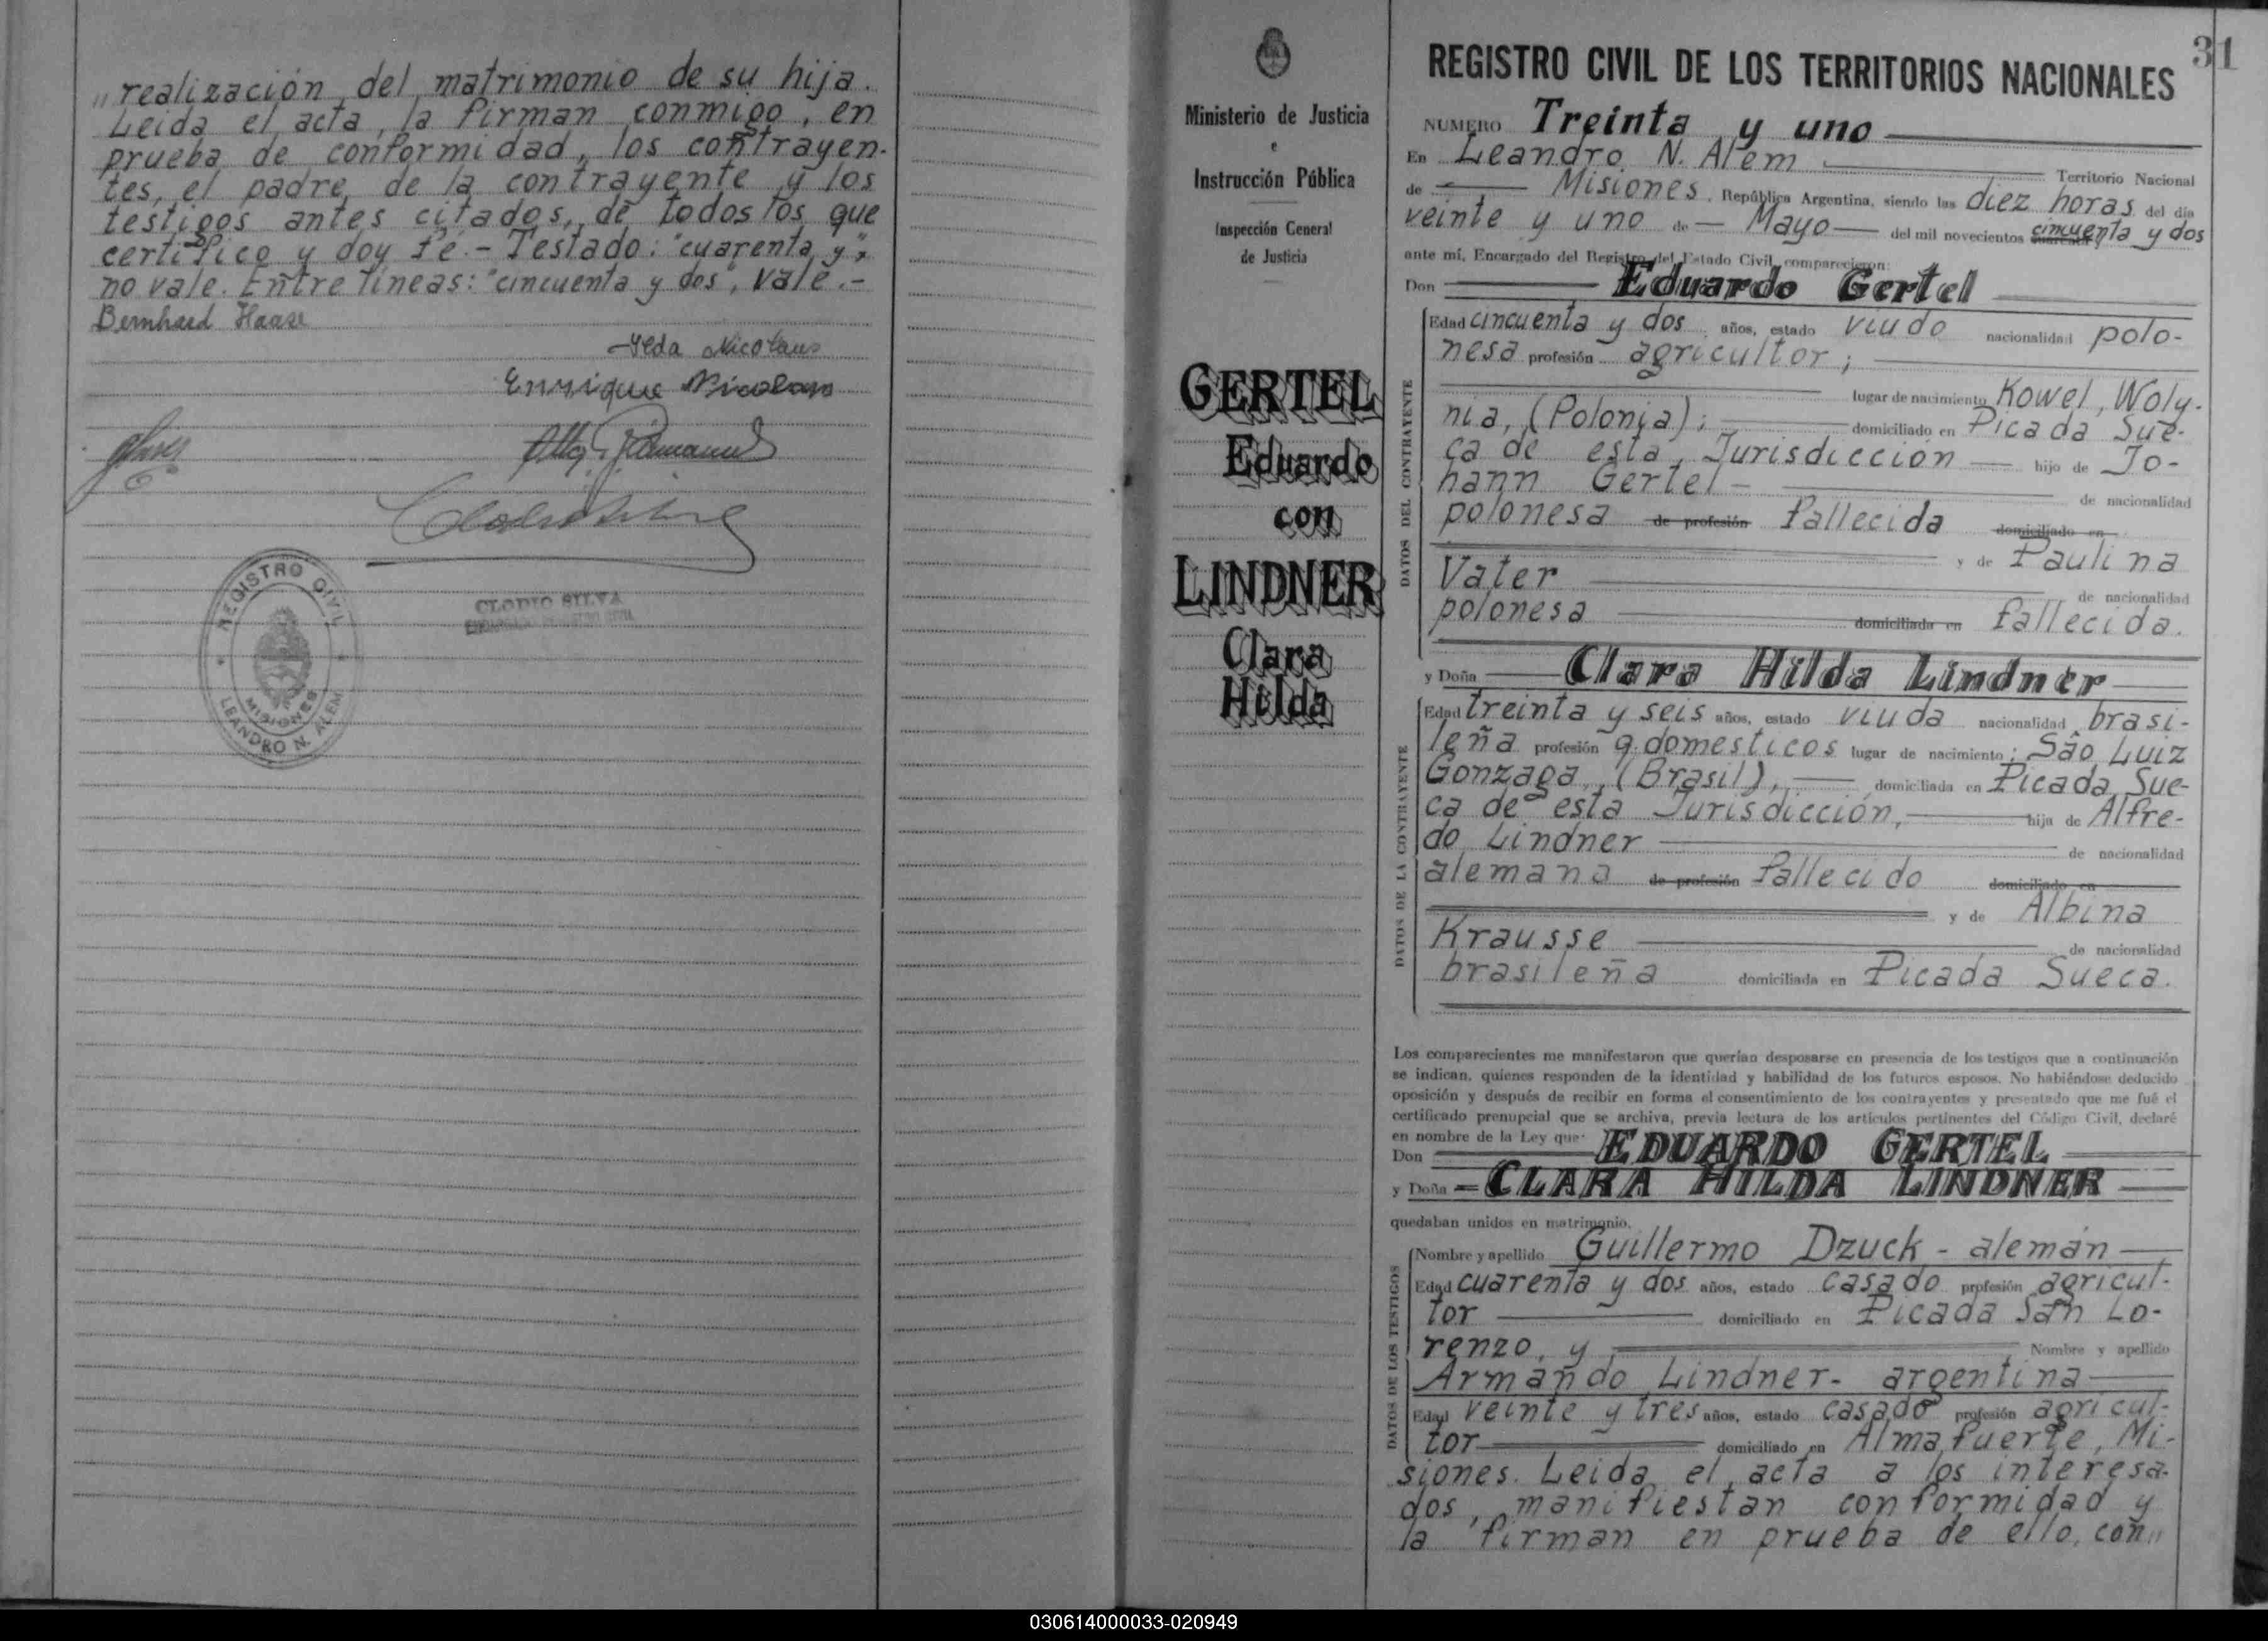 „realización del matrimonio de su hija.
Leída el acta, la firman conmigo, en
prueba de conformidad, los contrayen-
tes, el padre de la contrayente y los
testigos antes citados, de todos los que
certifico y doy fé.- Testado: "cuarenta y",
no vale. Entre líneas: "cincuenta y dos", vale.-
Bernhard Haase
Ilda Nicolaus
Enrique Nicolaus
REGISTRO CIVIL
MISIONES
LEANDRO N. ALEM
CLODIO SILVA
Ministerio de Justicia
e
Instrucción Pública
Inspección General
de Justicia
GERTEL
Eduardo
con
LINDNER
Clara
Hilda
31
REGISTRO CIVIL DE LOS TERRITORIOS NACIONALES
NUMERO Treinta y uno
En Leandro N. Alem Territorio Nacional
de Misiones, República Argentina, siendo las diez horas del día
veinte y uno de Mayo del mil novecientos cincuenta y dos
ante mí, Encargado del Registro del Estado Civil, comparecieron:
Don Eduardo Gertel
DATOS DEL CONTRAYENTE
Edad cincuenta y dos años, estado viudo nacionalidad polo-
nesa profesión agricultor;
lugar de nacimiento Kowel, Woly-
nia, (Polonia); domiciliado en Picada Sue-
ca de esta Jurisdicción hijo de Jo-
hann Gertel- de nacionalidad
polonesa de profesión fallecida domiciliado en
y de Paulina
Vater de nacionalidad
polonesa domiciliada en fallecida.
y Doña Clara Hilda Lindner
DATOS DE LA CONTRAYENTE
Edad treinta y seis años, estado viuda nacionalidad brasi-
leña profesión q. domesticos lugar de nacimiento: São Luiz
Gonzaga, (Brasil), domiciliada en Picada Sue-
ca de esta Jurisdicción, hija de Alfre-
do Lindner de nacionalidad
alemana de profesión fallecido domiciliado en
y de Albina
Krausse de nacionalidad
brasileña domiciliada en Picada Sueca.
Los comparecientes me manifestaron que querían desposarse en presencia de los testigos que a continuación
se indican, quienes responden de la identidad y habilidad de los futuros esposos. No habiéndose deducido
oposición y después de recibir en forma el consentimiento de los contrayentes y presentado que me fué el
certificado prenupcial que se archiva, previa lectura de los artículos pertinentes del Código Civil, declaré
en nombre de la Ley que:
Don EDUARDO GERTEL
y Doña CLARA HILDA LINDNER
quedaban unidos en matrimonio.
DATOS DE LOS TESTIGOS
Nombre y apellido Guillermo Dzuck - alemán
Edad cuarenta y dos años, estado casado profesión agricul-
tor domiciliado en Picada San Lo-
renzo, y Nombre y apellido
Armando Lindner- argentina
Edad veinte y tres años, estado casado profesión agricul-
tor domiciliado en Alma fuerte, Mi-
siones. Leída el acta a los interesa-
dos, manifiestan conformidad y
la firman en prueba de ello, con„
030614000033-020949